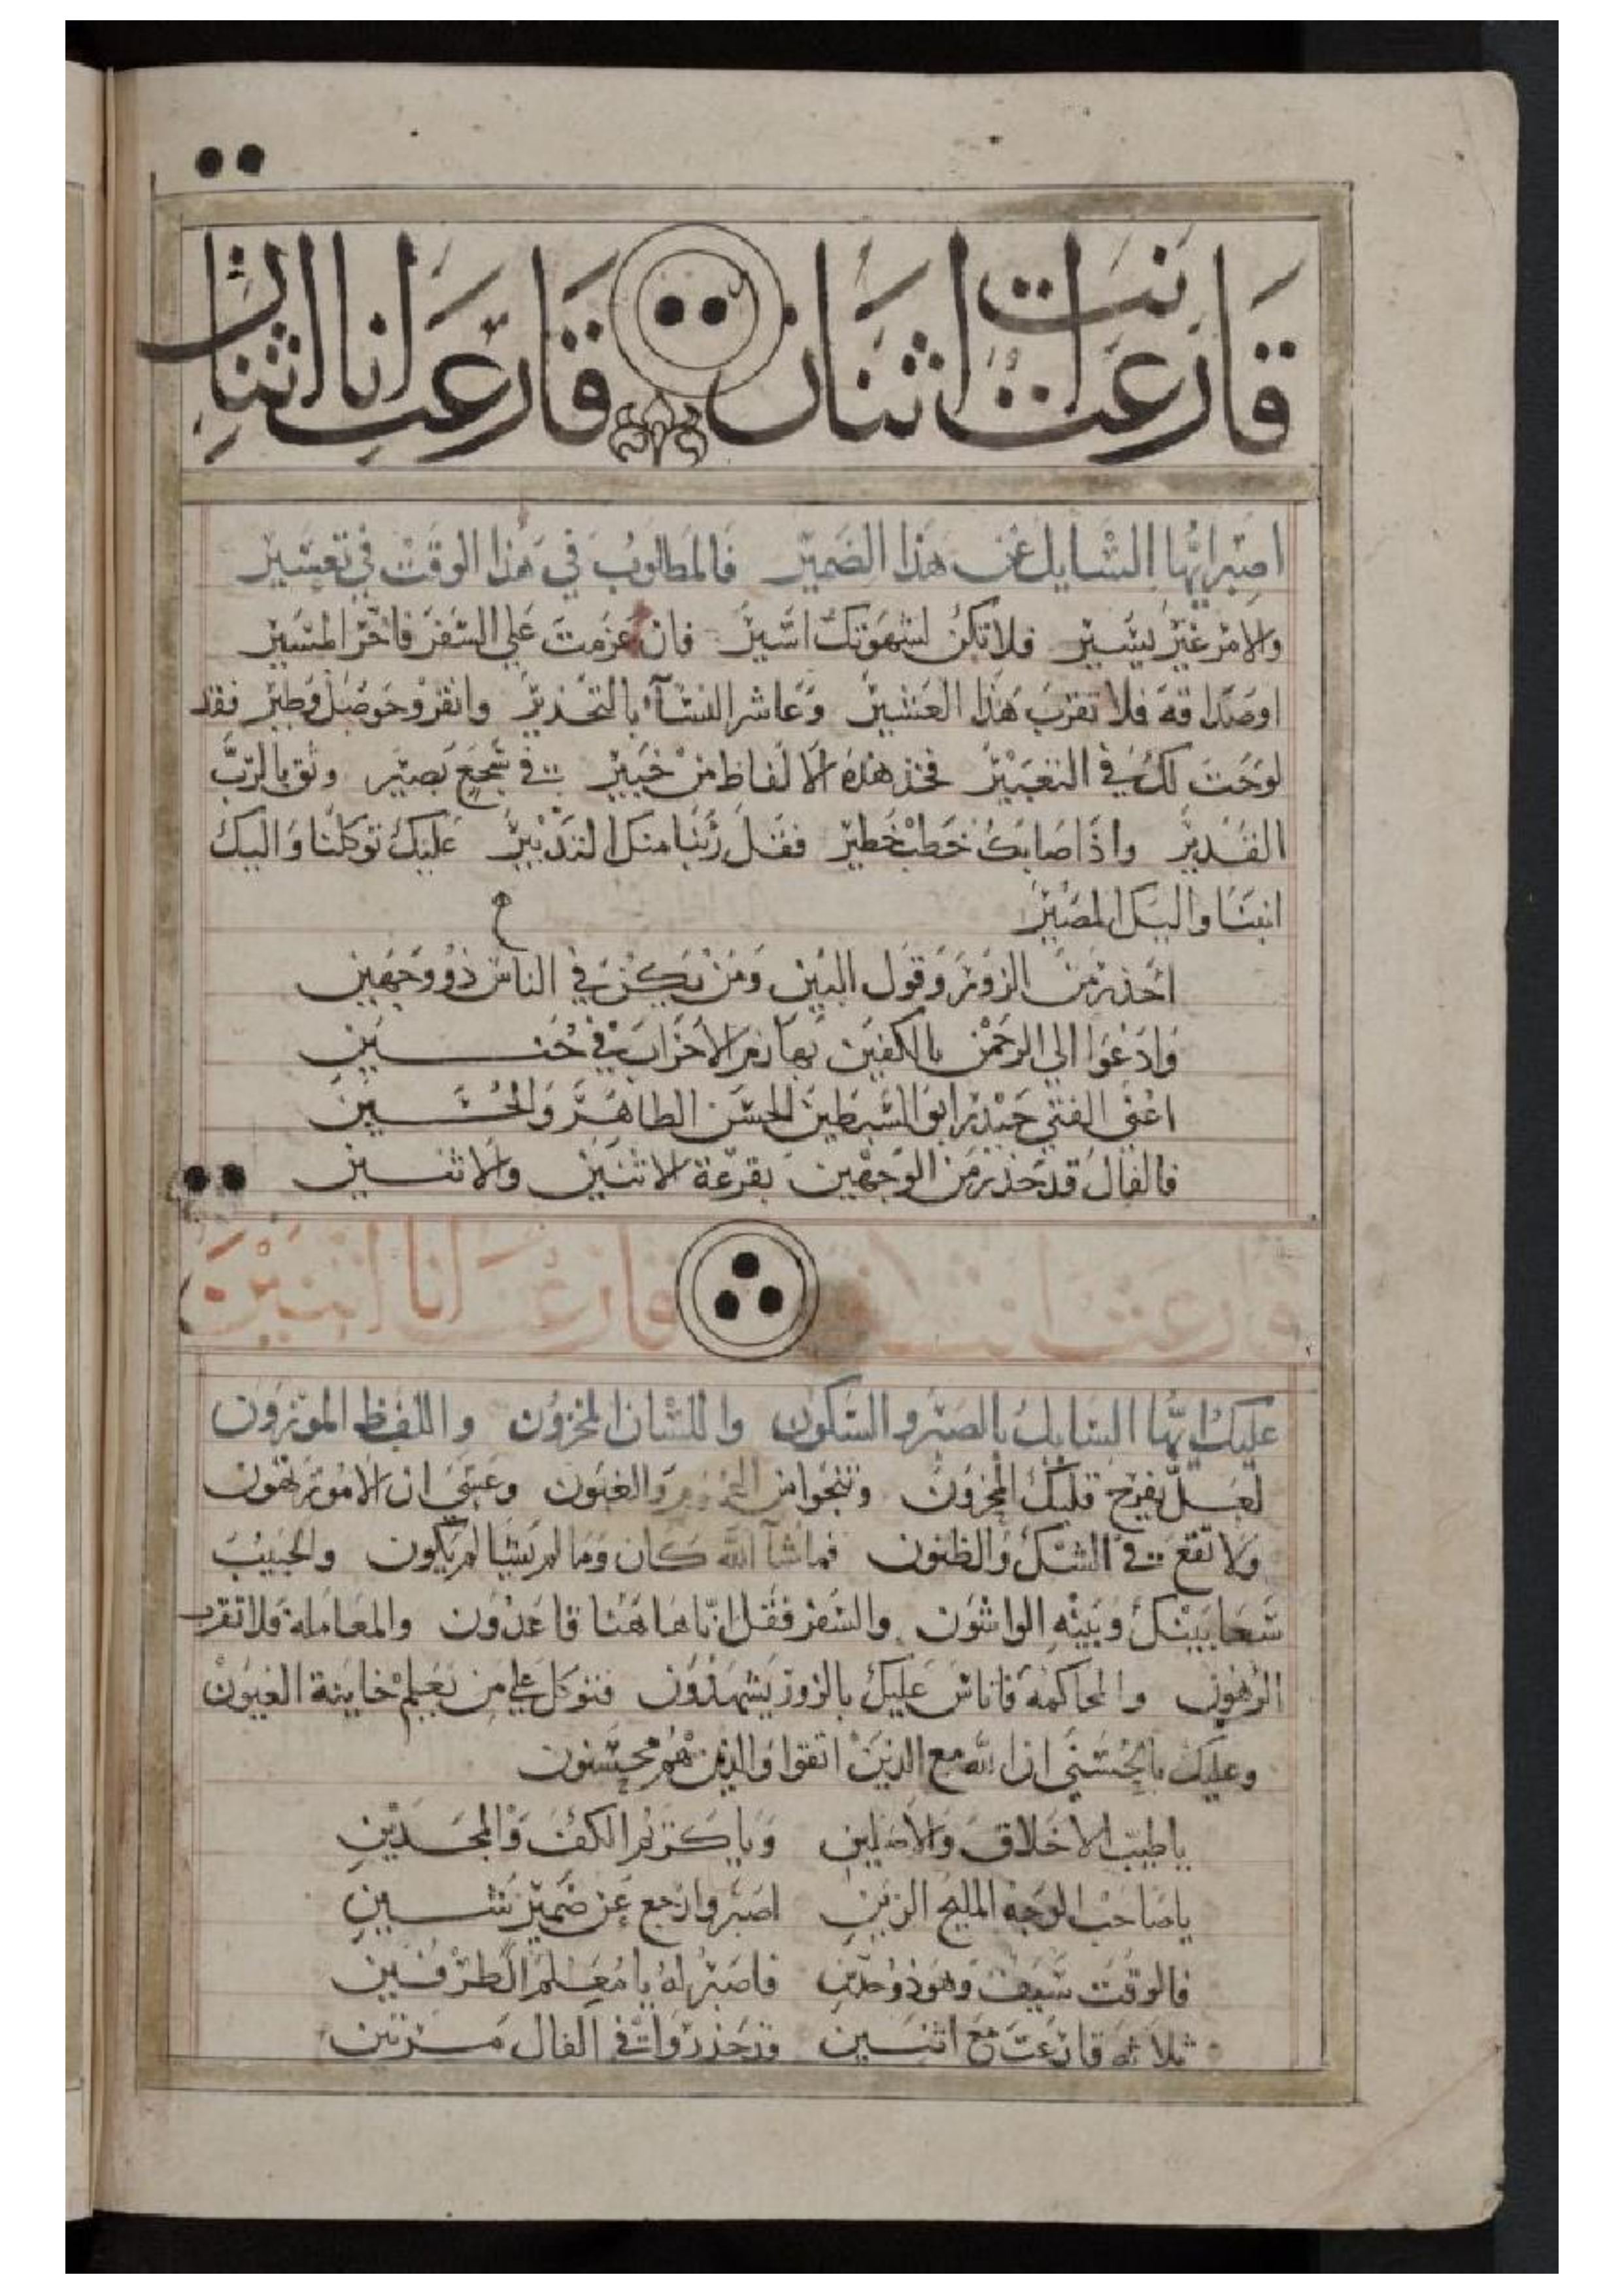 قارعت انت اثنان قارعت انا اثنان
اصبر ايها السايل عن هذا الضمير فالمطلوب في هذا الوقت في تعسير
والامر غير يسير فلا تكن لشهوتك اسير فان عزمت على السفر فاخر المسير
او صداقة فلا تقرب هذا العشير وعاشر النساء بالتحذير وانقر وحوصل وطير فقد
لوحت لك في التعبير فخذ هذه الالفاظ من خبير في سجع بصير وثق بالرب
القدير واذا اصابك خطب خطير فقل ربنا منك التدبير عليك توكلنا واليك
انبنا واليك المصير
احذر من الزور وقول المين ومن يكن في الناس ذو وجهين
وادعوا الى الرحمن بالكفين بهازم الاحزاب في حنين
اعني الفتى حيدر ابو السبطين الحسن الطاهر والحسين
فالفال قد حذر من الوجهين بقرعة الاثنين والاثنين
قارعت انت ثلاثة قارعت انا اثنين
عليك ايها السايل بالصبر والسكون واللسان المخزون واللفظ الموزون
لعل يفرح قلبك المحزون وتنجوا من والغبون وعسى ان الامور تهون
ولا تقع في الشك والظنون فما شآ الله كان وما لم يشا لم يكون والحبيب
سعا بينك وبينه الواشون والسفر فقل انا هاهنا قاعدون والمعاملة فلا تقرب
الرهون والمحاكمة فاناس عليك بالزور يشهدون فتوكل على من يعلم خاينة العيون
وعليك بالحسنى ان الله مع الذين اتقوا والذين هم محسنون
يا طيب الاخلاق والاصلين ويا كريم الكف والجدين
يا صاحب الوجه المليح الزين اصبر وارجع عن ضمير شين
فالوقت سيف وهو ذو حدين فاصبر له يا معلم الطرفين
ثلاثة قارعت مع اثنين قد حذروا في الفال مرتين